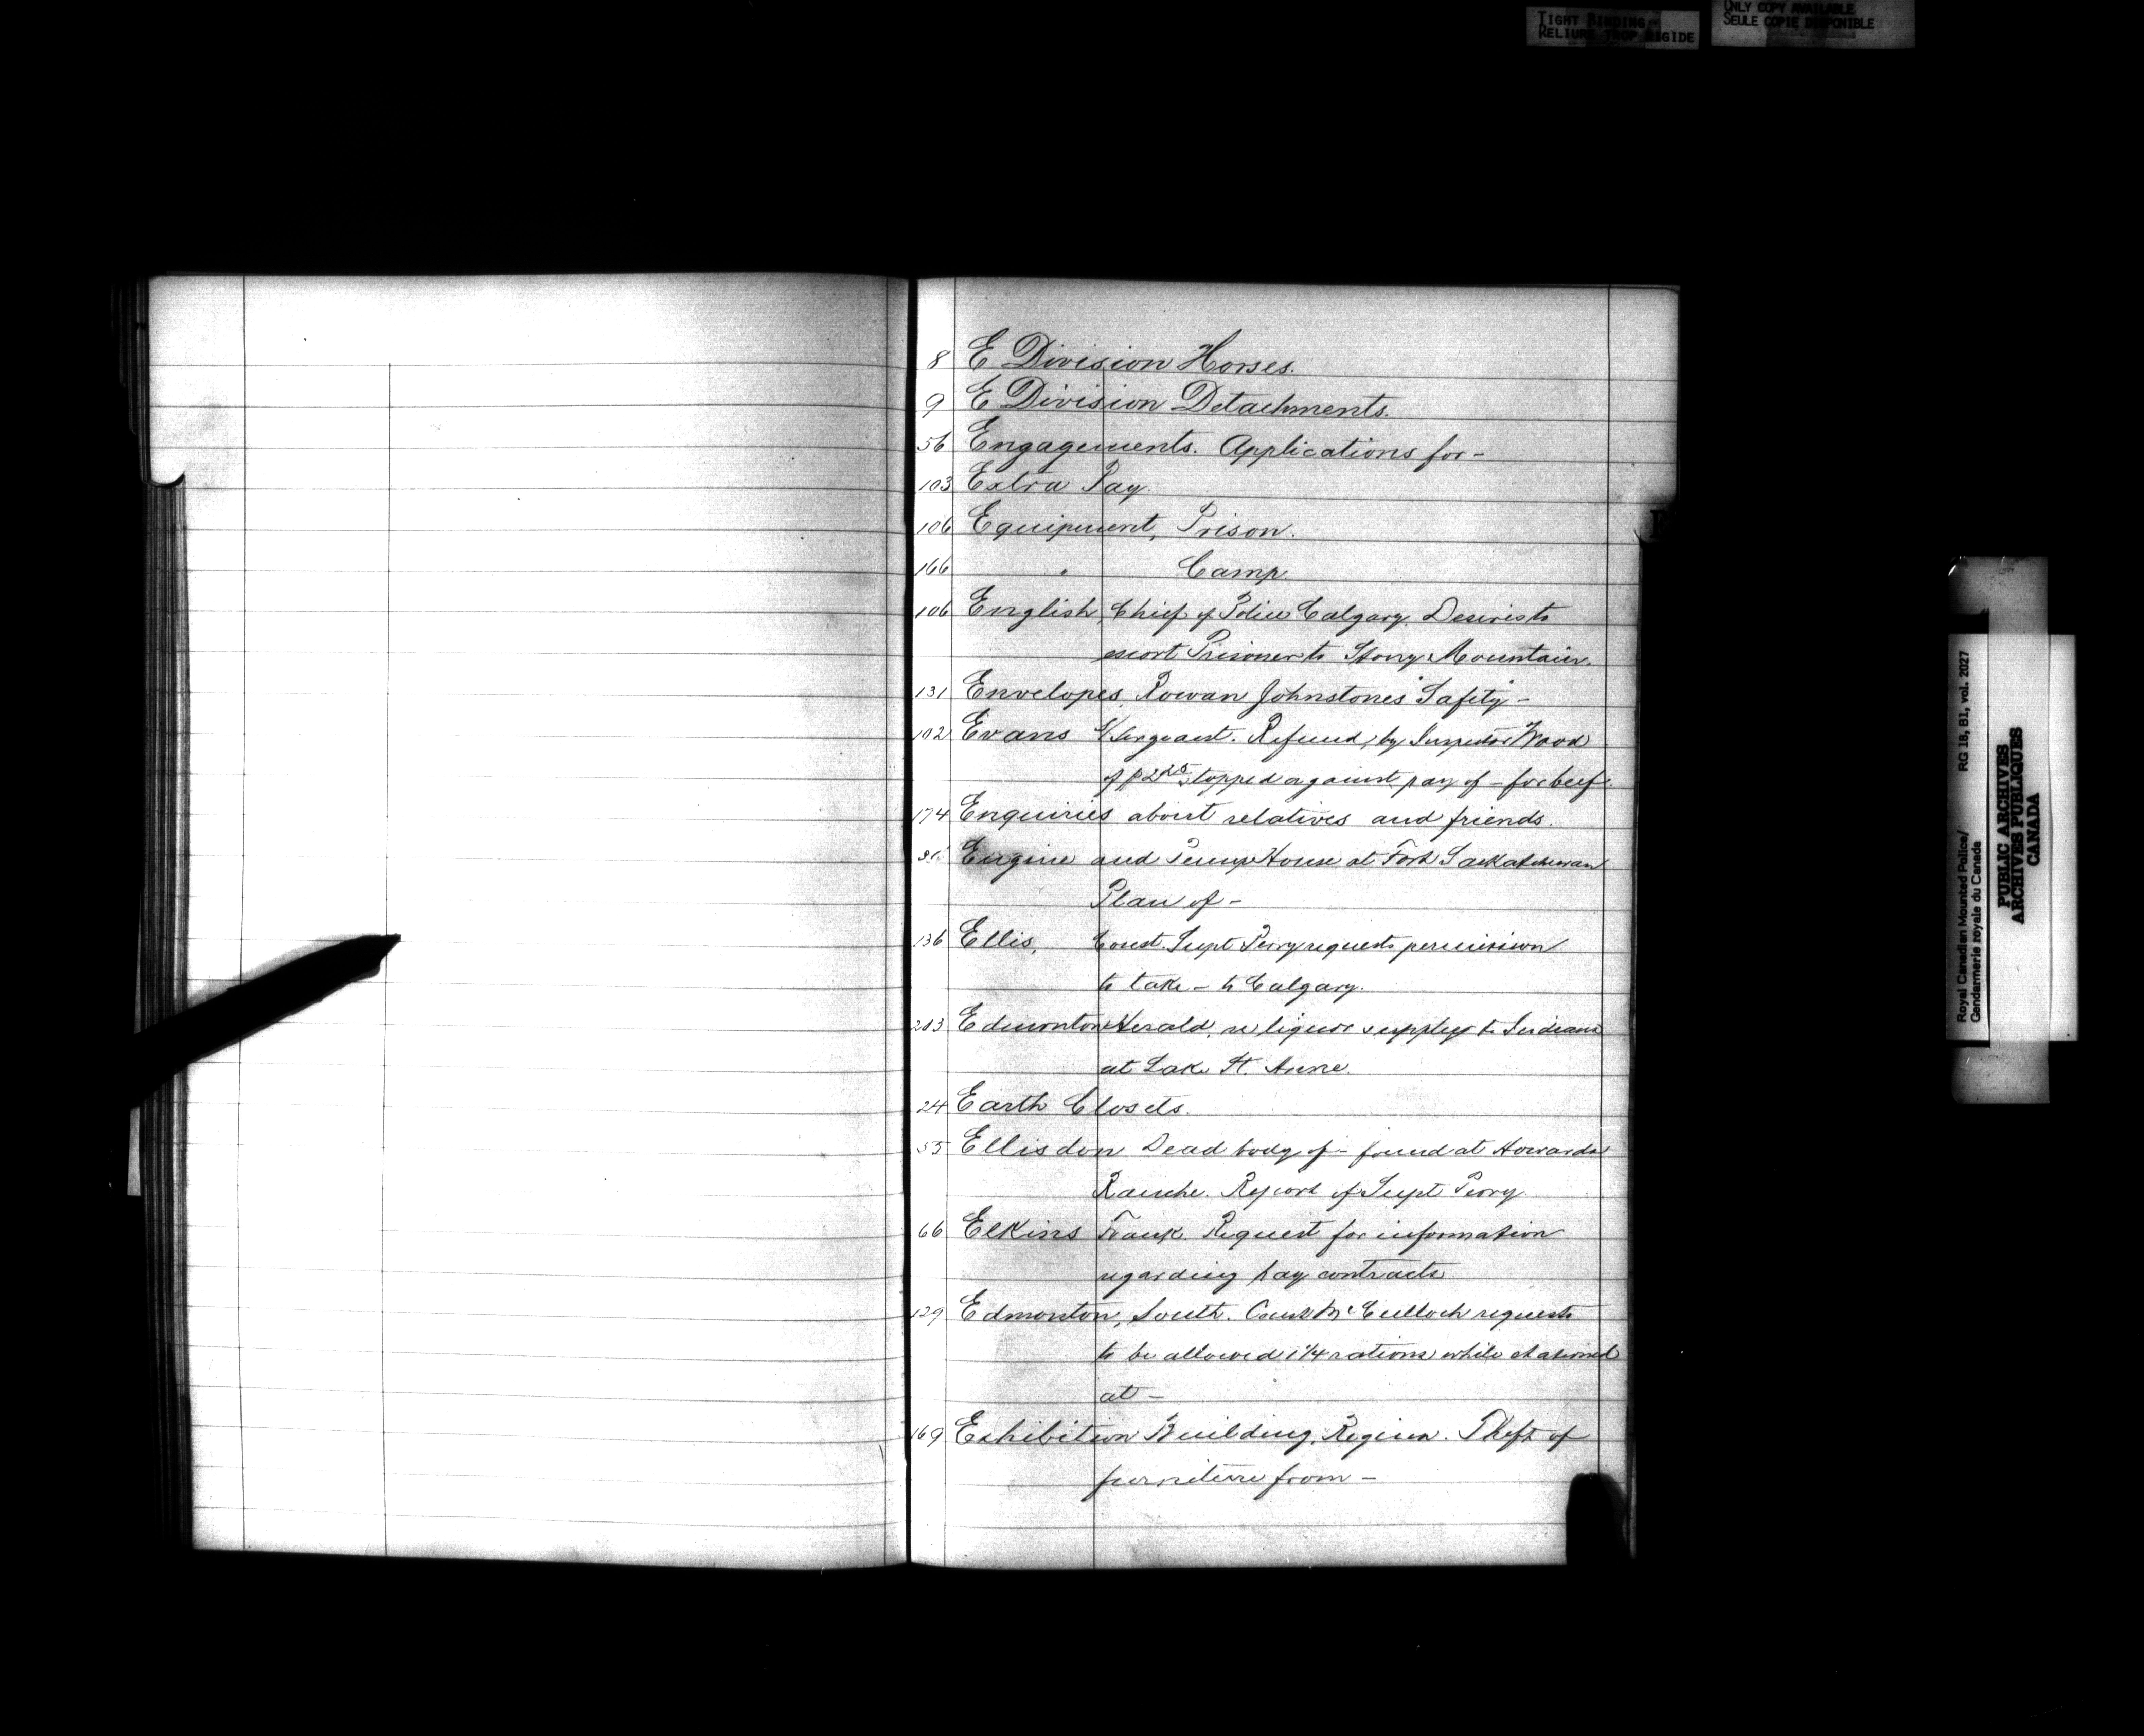 TIGHT BINDING -
RELIURE TROP RIGIDE
ONLY COPY AVAILABLE
SEULE COPIE DISPONIBLE
8 E Division Horses.
9 E Division Detachments.
56 Engagements. Applications for -
103 Extra Pay.
106 Equipment, Prison.
166 " Camp
106 English, Chief of Police Calgary. Desires to
escort Prisoner to Stony Mountain.
131 Envelopes, Rowan Johnstones "Safety" -
102 Evans S/Sergeant. Refund, by Inspector Wood
of $2.25 stopped against pay of - for beef.
174 Enquiries about relatives and friends.
Engine and Pump House at Fort Saskatchewan
Plan of -
136 Ellis, Const. Supt Perry requests permission
to take - to Calgary.
213 Edmonton Herald, re liquor supply to Indians
at Lake St. Anne.
24 Earth Closets.
55 Ellisdon Dead body of - found at Howards
Ranche. Report of Supt Perry.
66 Elkins Frank. Request for information
regarding hay contracts.
129 Edmonton, South. Const McCulloch requests
to be allowed 1 1/4 rations while stationed
at -
169 Exhibition Building, Regina. Theft of
furniture from -
E
Royal Canadian Mounted Police/ RG 18, B1, vol. 2027
Gendarmerie royale du Canada
PUBLIC ARCHIVES
ARCHIVES PUBLIQUES
CANADA